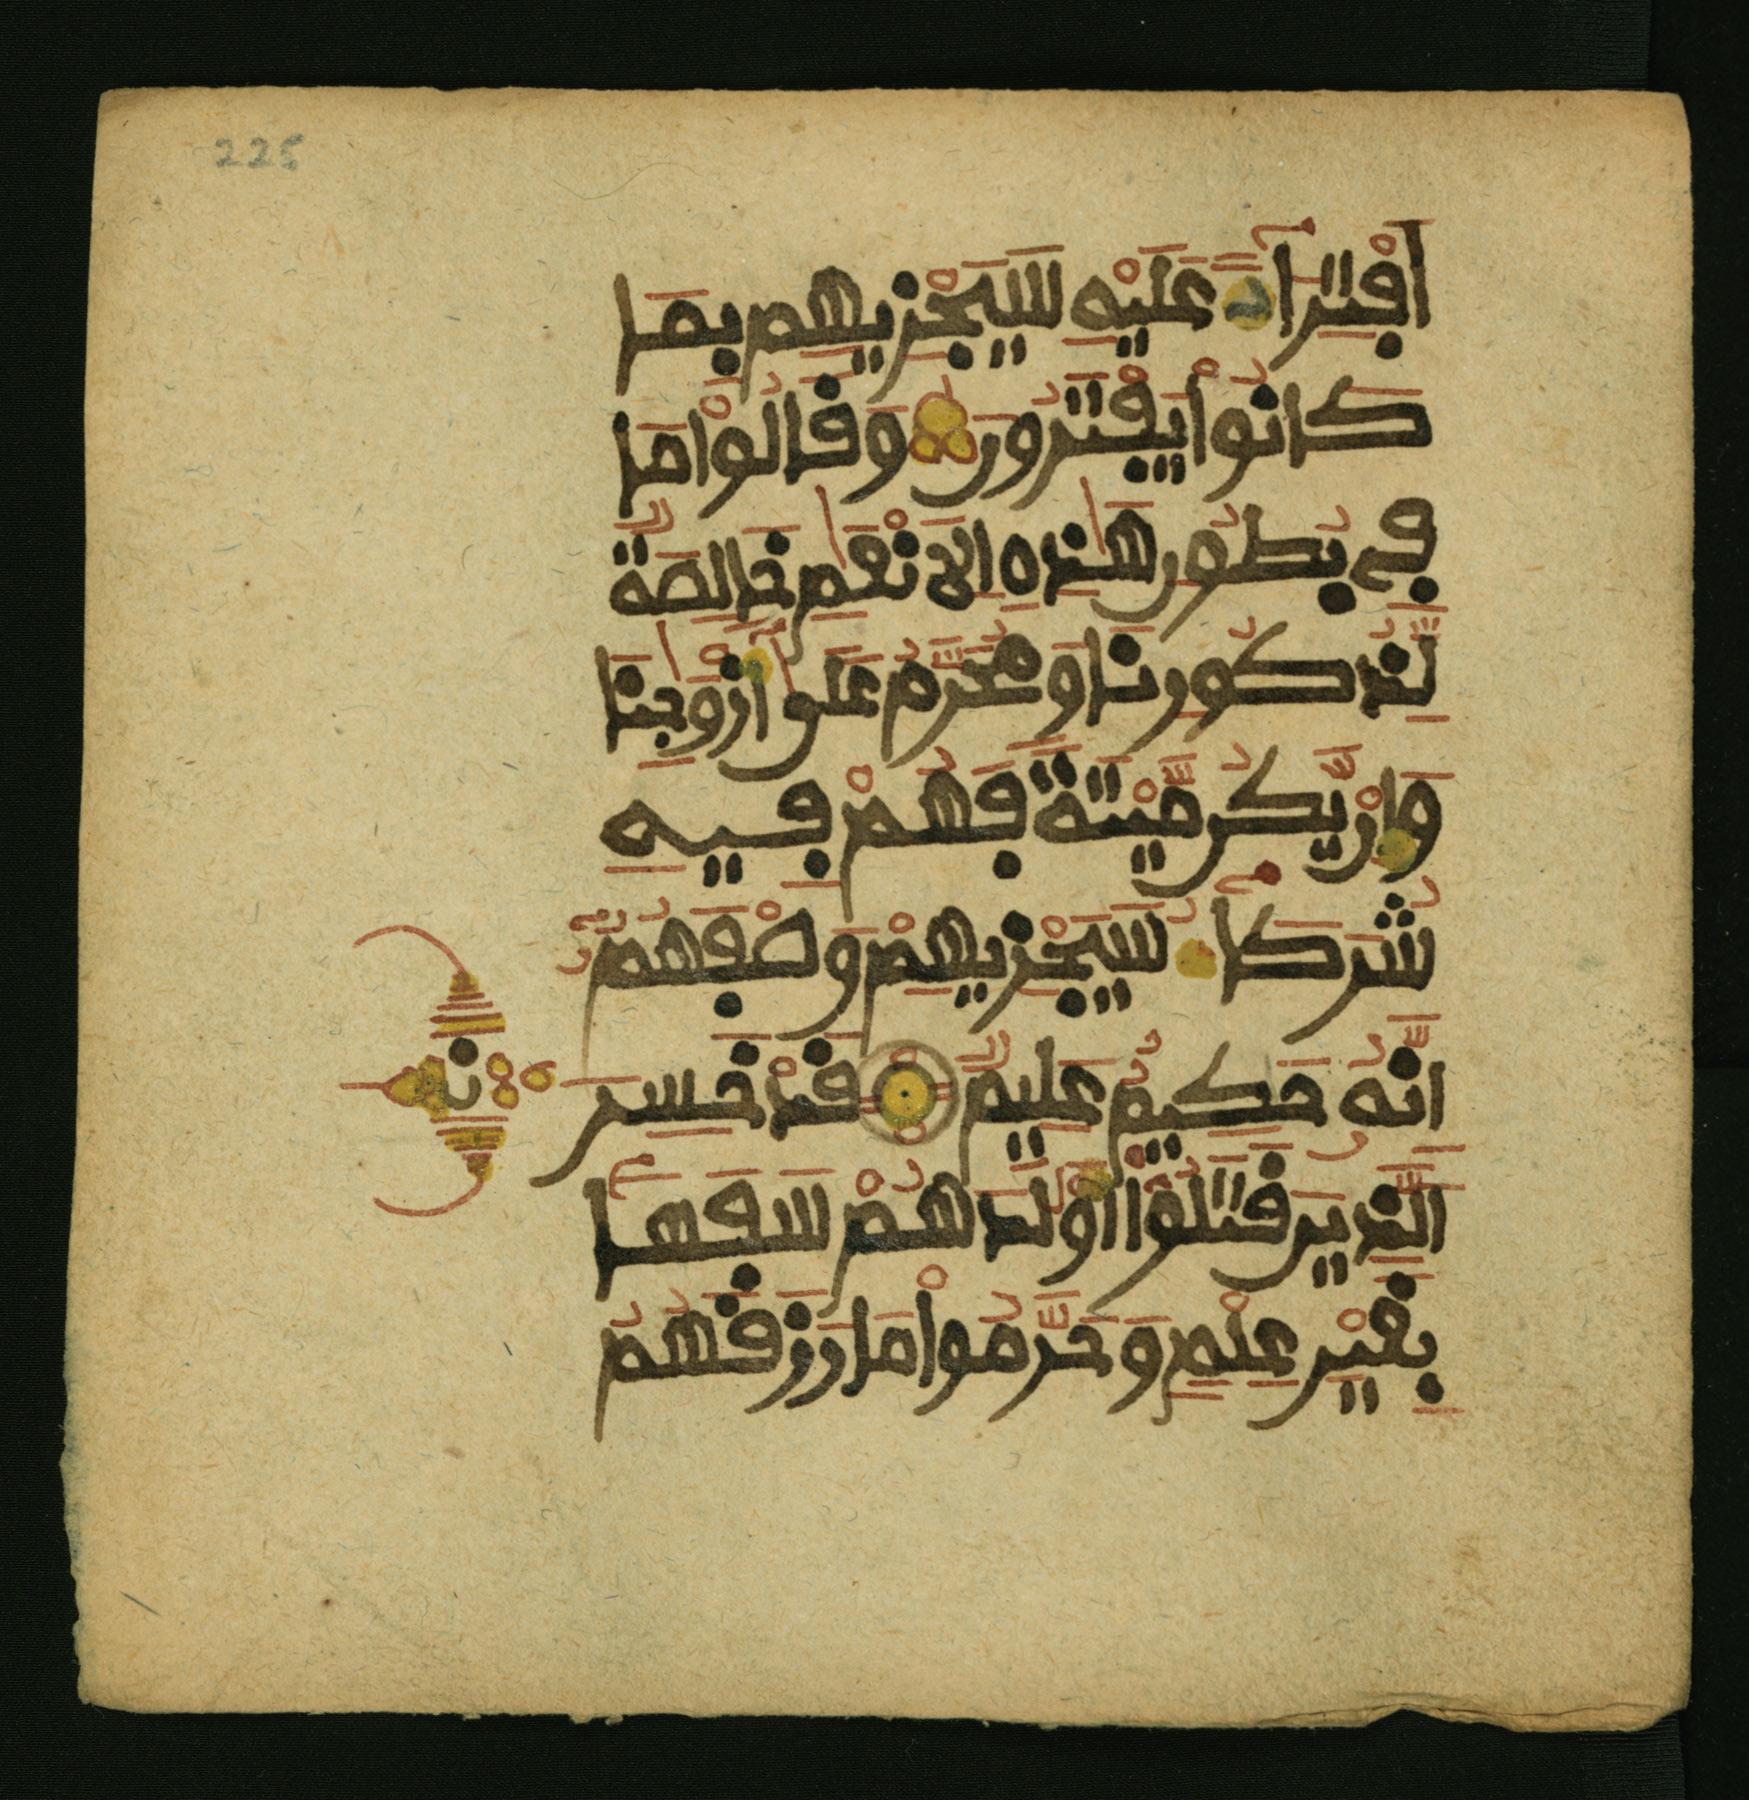 225
اَفْتِرَآءً عَلَيْهِ سَيَجْزِيهِم بِمَا
كَانُواْ يَفْتَرُونَ وَقَالُواْ مَا
فِي بُطُونِ هَٰذِهِ الَانْعَٰمِ خَالِصَةٌ
لِّذُكُورِنَا وَمُحَرَّمٌ عَلَىٰ أَزْوَٰجِنَا
وَإِنْ يَّكُن مَّيْتَةً فَهُمْ فِيهِ
شُرَكَآءُ سَيَجْزِيهِمْ وَصْفَهُمُ
إِنَّهُ حَكِيمٌ عَلِيمٌ قَدْ خَسِرَ
ن
الَّذِينَ قَتَلُواْ أَوْلَٰدَهُمْ سَفَهَا
بِغَيْرِ عِلْمٍ وَحَرَّمُواْ مَا رَزَقَهُمُ